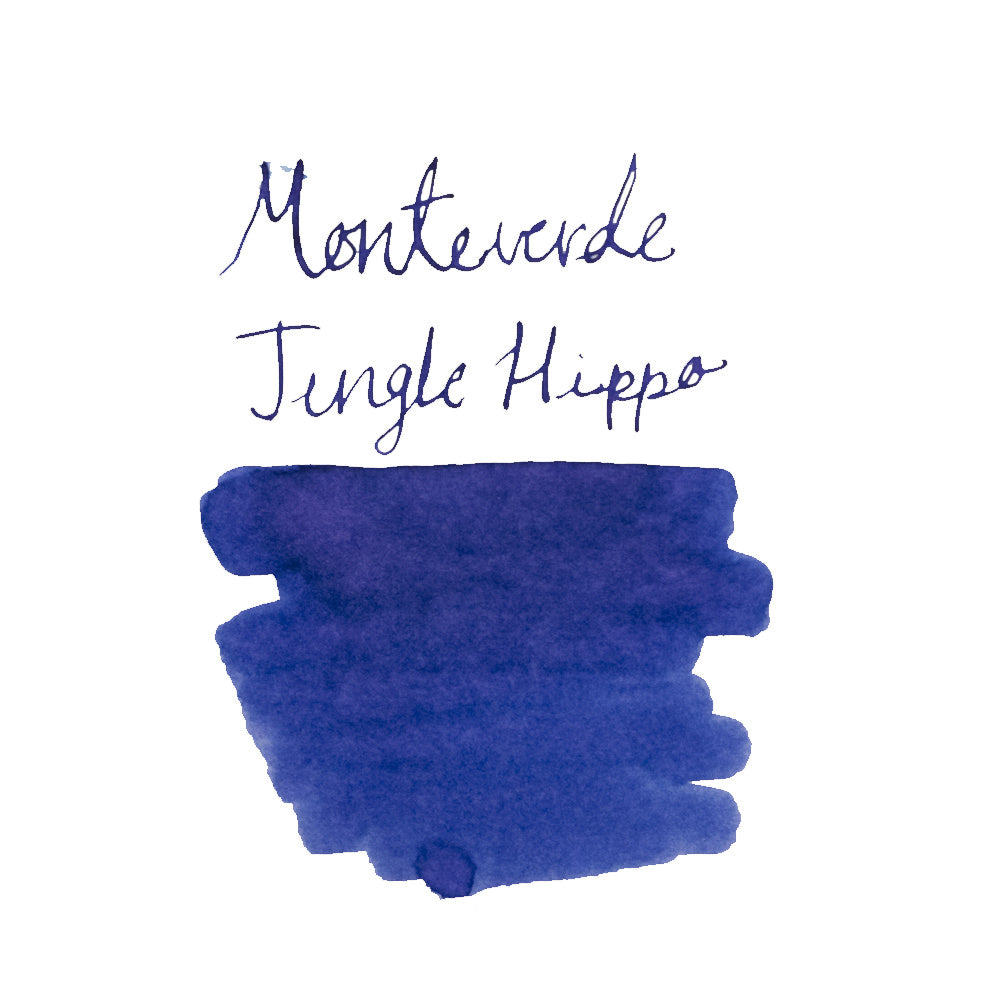 Monteverde
Jungle Hippo